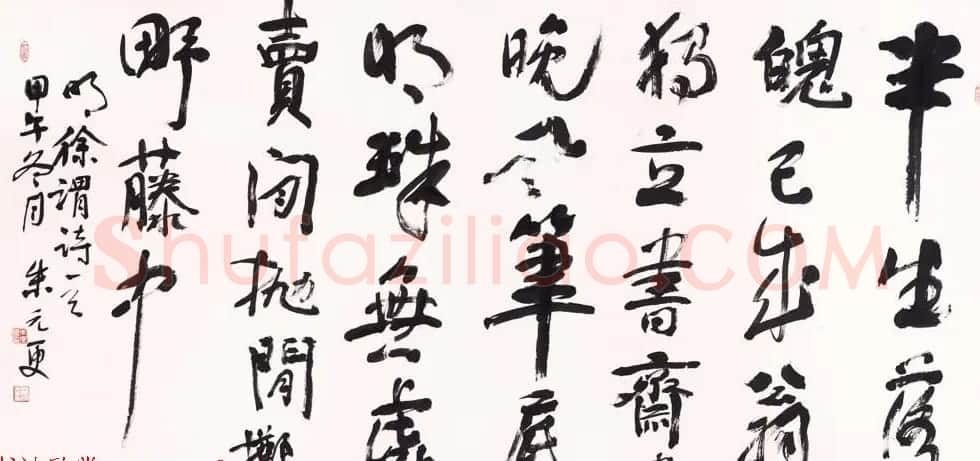 半生落
魄已成翁
獨立書齋
晚风筆底
明珠無處
賣閒拋閒擲
野藤中
明徐謂詩一首
甲午冬月 朱元更
Shufaziliao.COM